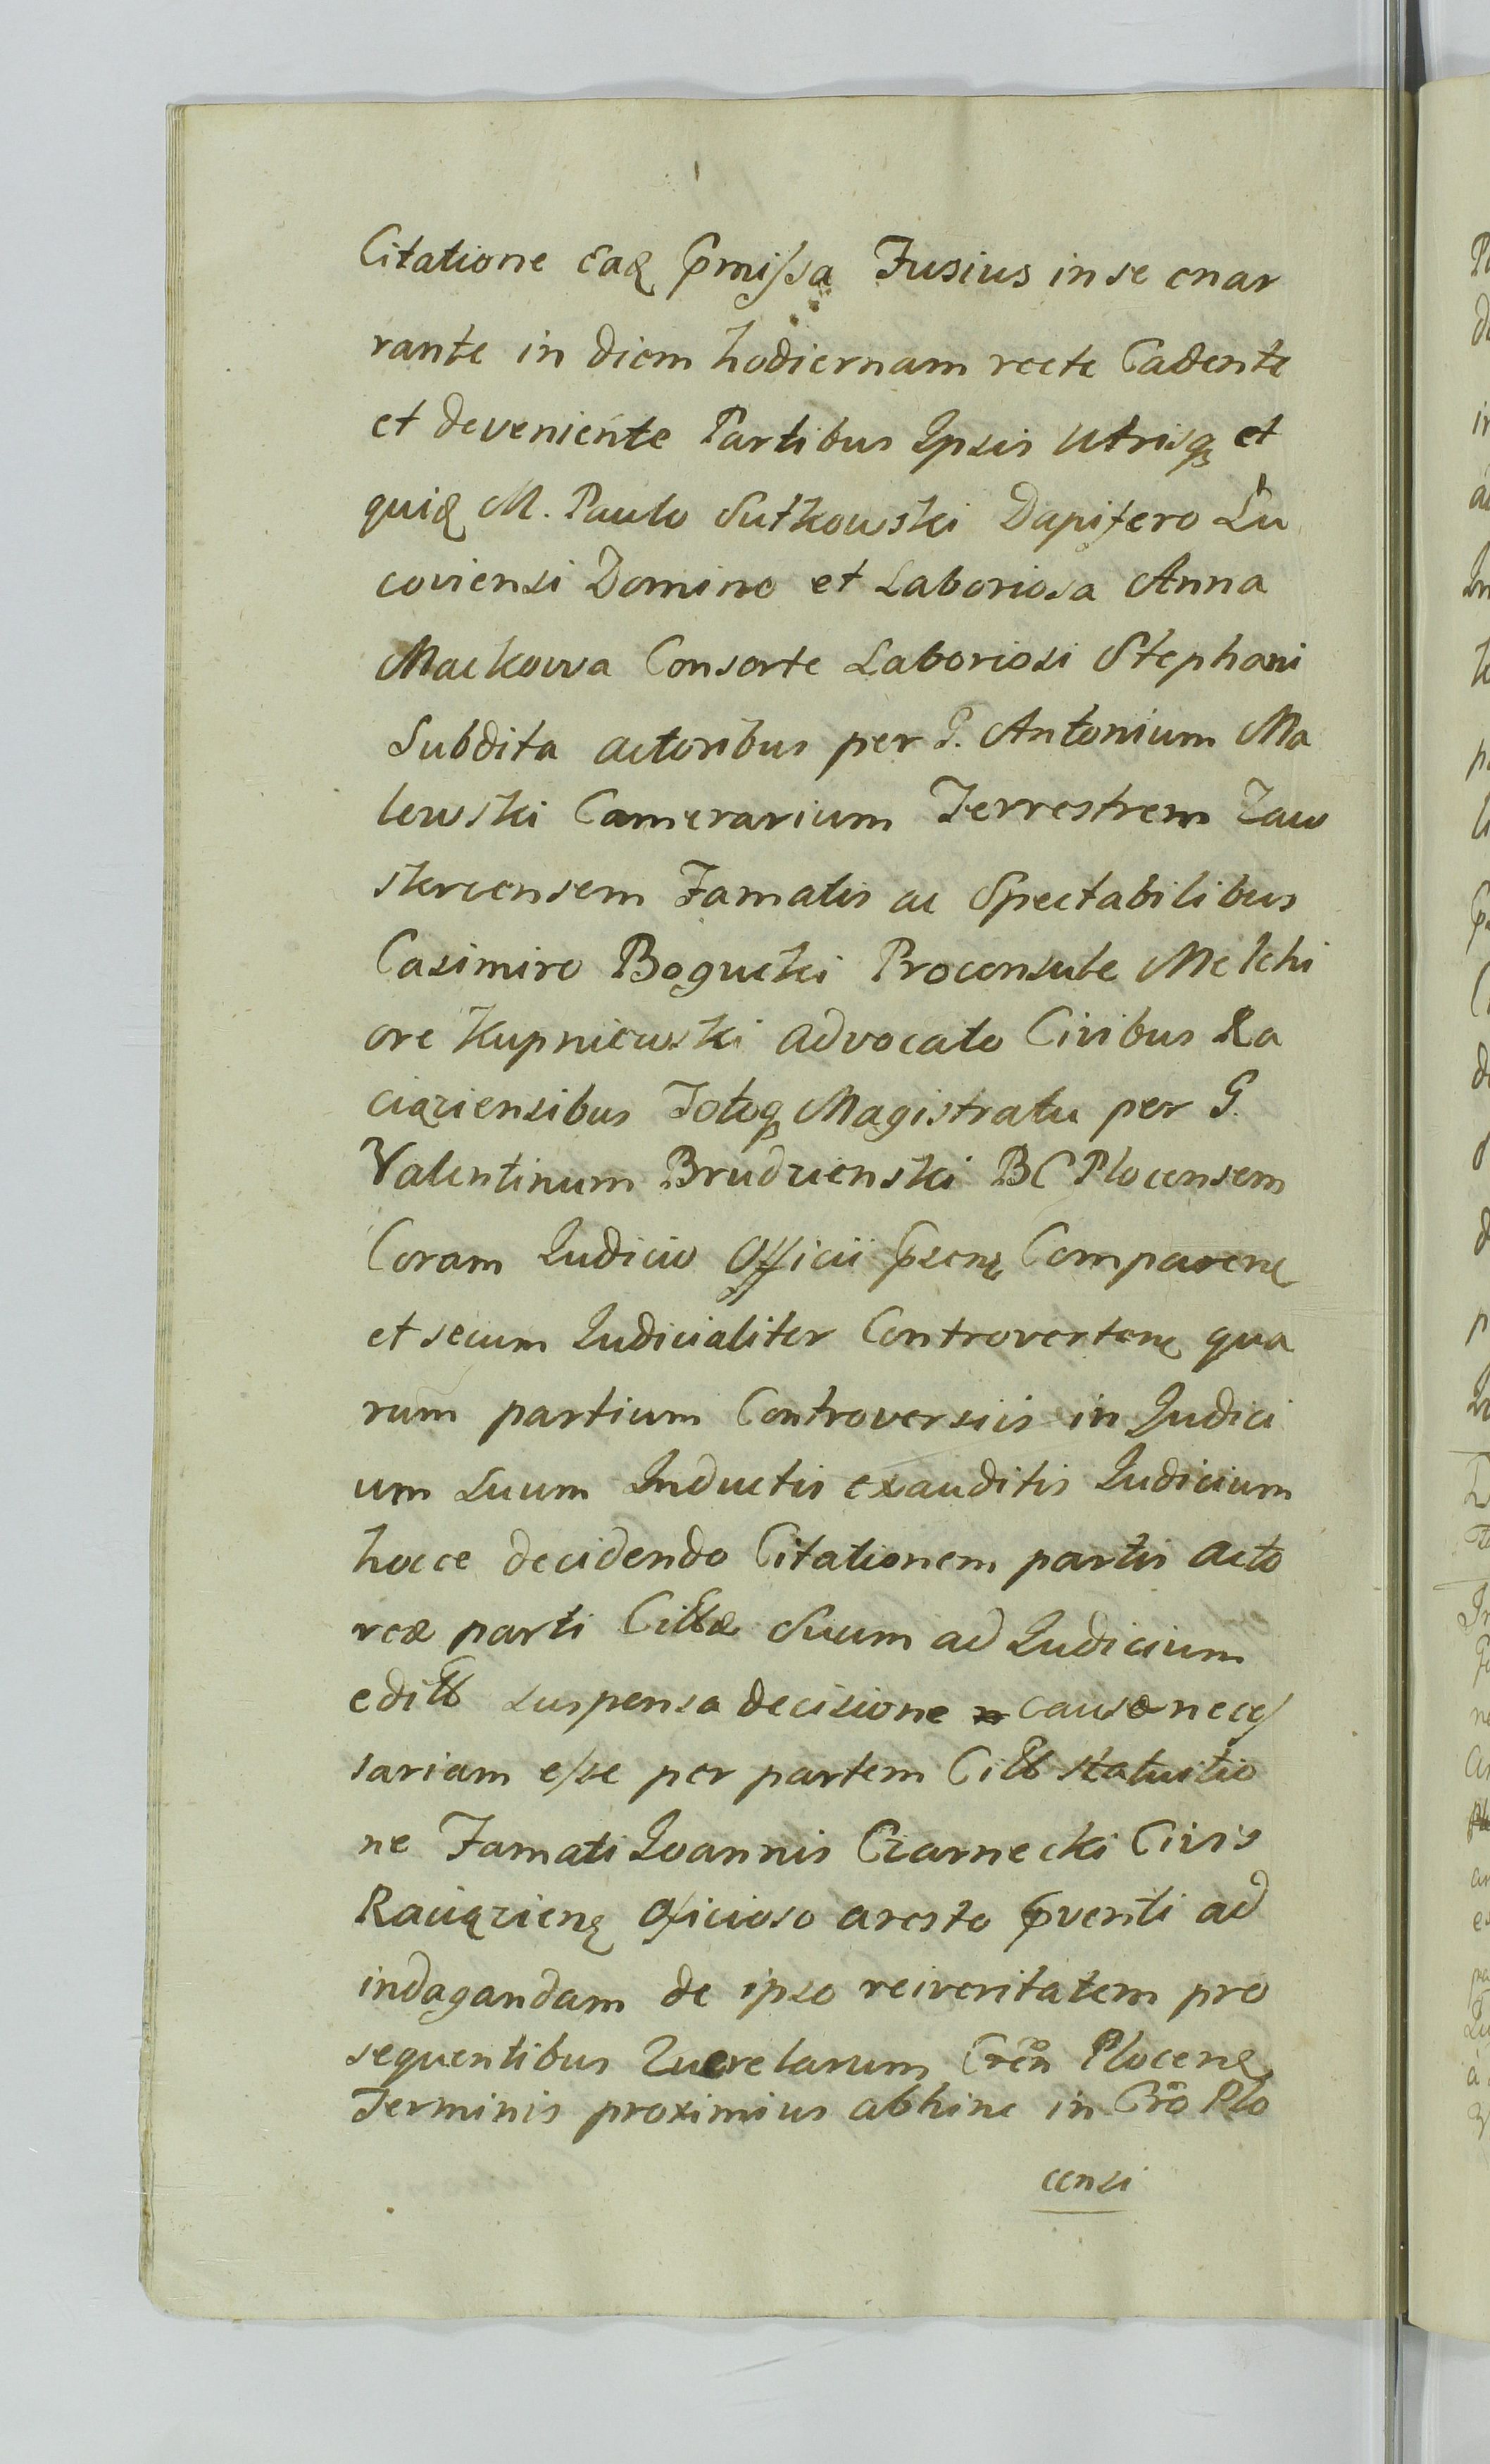 Citatione eaq pmissa Fusius in se enar
rante in diem hodiernam recte Cadente
et deveniente Partibus Ipsis Utrisq et
quiq M. Paulo Sutkowski Dapifero Lu
coviensi Domino et Laboriosa Anna
Mackowa Consorte Laboriosi Stephani
Subdita actoribus per G. Antonium Ma
lewski Camerarium Terrestrem Zaw
skrcensem Famatis ac Spectabilibus
Casimiro Bogucki Proconsule Melchi
ore Kupniewski Advocato Civibus Ra
ciąziensibus Totoq Magistratu per G.
Valentinum Brudzienski BC Plocensem
Coram Iudicio Officii psenę Comparenę
et secum Iudicialiter Controvertenę qua
rum partium Controversiis in Iudici
um Suum Inductis exauditis Iudicium
hocce decidendo Citationem partis acto
reæ parti Cittæ Suum ad Iudicium
editt suspensa decisione causæ neces
sariam esse per partem Citt statuitio
ne Famati Ioannis Czarnecki Civis
Raciązienę oficioso aresto pventi ad
indagandam de ipso rei veritatem pro
sequentibus Querelarum Cren Plocenę
Terminis proximius abhinc in Cro Plo
censi